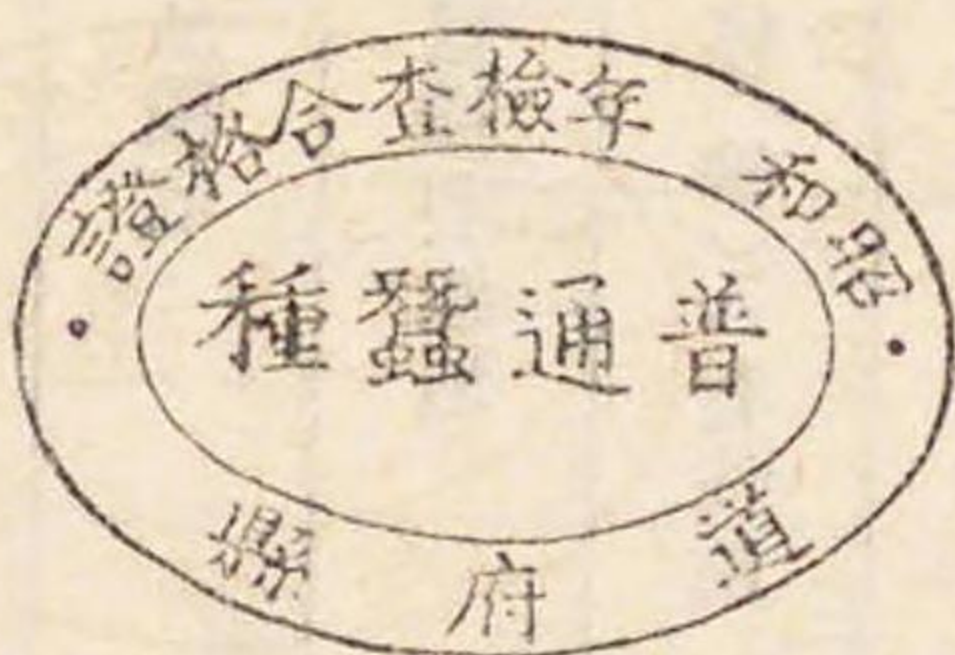 昭和 年檢査合格證
普通蠶種
道府縣